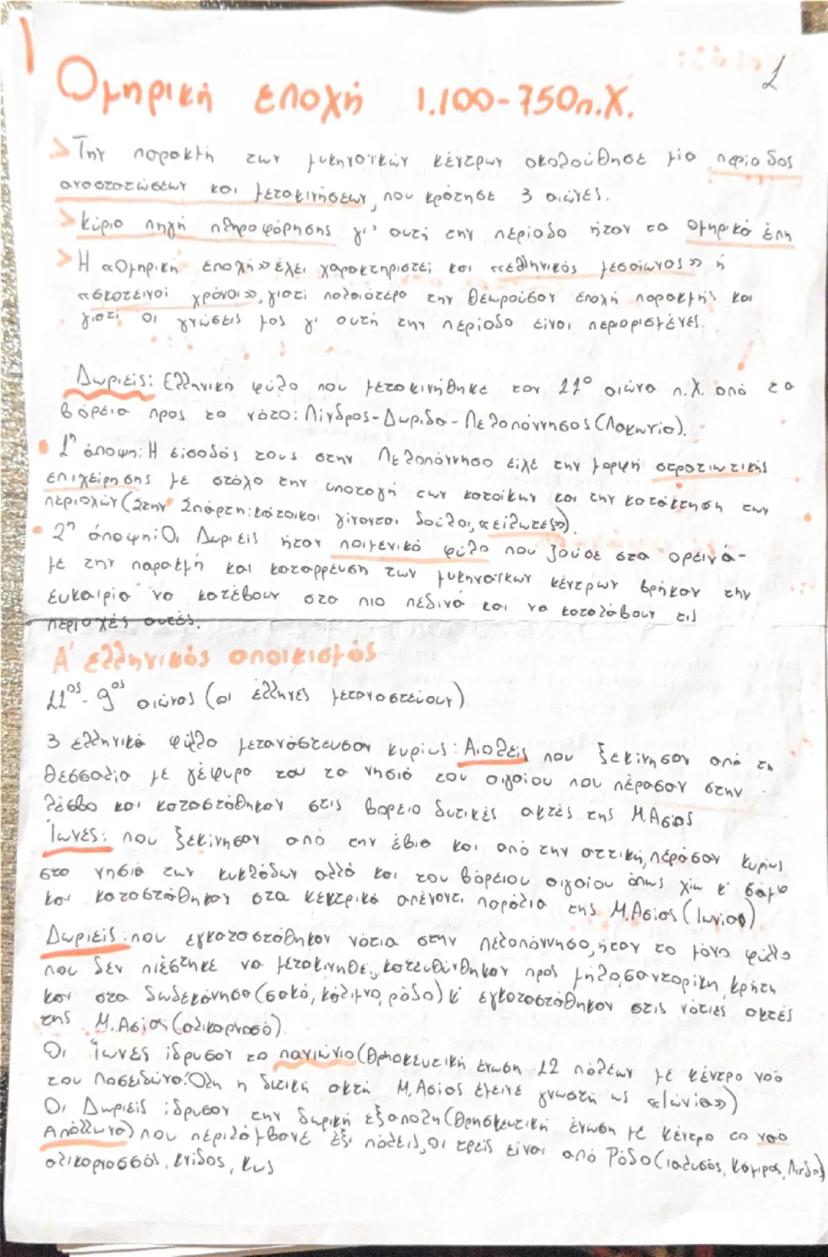 1
Ομηρική εποχή 1.100-750π.Χ.
> Την παρακμή των μυκηναϊκών κέντρων ακολούθησε μία περίοδος
αναστατώσεων και μετακινήσεων, που κράτησε 3 αιώνες.
> Κύρια πηγή πληροφόρησης γι' αυτή την περίοδο ήταν τα ομηρικά έπη
> Η «Ομηρική εποχή» έχει χαρακτηριστεί και «ελληνικός μεσαίωνας» ή
«σκοτεινοί χρόνοι», γιατί παλαιότερα την θεωρούσαν εποχή παρακμής και
γιατί οι γνώσεις μας γι αυτή την περίοδο είναι περιορισμένες.
Δωριείς: Ελληνικά φύλο που μετακινήθηκε τον 11ο αιώνα π.Χ. από τα
βόρεια προς τα νότο: Πίνδρος-Δωρίδα-Πελοπόννησος (Λακωνία).
• 1η άποψη: Η είσοδός τους στην Πελοπόννησο είχε την μορφή στρατιωτικής
επιχείρησης με στόχο την υποταγή των κατοίκων και την κατάκτηση των
περιοχών (στην Σπάρτη: κάτοικοι γίνονται δούλοι, «είλωτες»).
• 2η άποψη: Οι Δωριείς ήταν ποιμενικό φύλο που ζούσε στα ορεινά-
με την παρακμή και κατάρρευση των μυκηναϊκων κέντρων βρήκαν την
ευκαιρία να κατέβουν στα πιο πεδινά και να καταλάβουν τις
περιοχές αυτές.
Α' ελληνικός αποικισμός
11ος-9ος αιώνας (οι έλληνες μεταναστεύουν)
3 ελληνικά φύλλα μετανάστευσαν κυρίως: Αιολείς που ξεκίνησαν από τη
θεσσαλία με γέφυρα του τα νησιά του αιγαίου που πέρασαν στην
λέσβο και καταστάθηκαν στις βόρειο δυτικές ακτές της Μ.Ασίας
Ίωνες: που ξεκίνησαν από την έβια και από την αττική, πέρασαν κυρίως
στα νησιά των κυκλάδων αλλά και του βόρειου αιγαίου όπως χίο κ' σάμο
και καταστάθηκαν στα κεντρικά απέναντι παράλια της Μ.Ασίας (Ιωνία)
Δωριείς: που εγκαταστάθηκαν νότια στην πελοπόννησο, ήταν το μόνο φύλλο
που δεν πιέστηκε να μετακινηθεί, κατευθύνθηκαν προς μήλο, σαντορίκη, κρήτη
και στα δωδεκάνησα (σακό, κάλιμνο, ρόδο) κ' εγκαταστάθηκαν στις νότιες ακτές
της Μ.Ασίας (αλικαρνασό).
Οι Ίωνες ίδρυσαν το πανιώνιο (θρησκευτική ένωση 12 πόλεων με κέντρο ναό
του Ποσειδώνα. Όλη η δυτική ακτή Μ.Ασίας έμεινε γνωστή ως «Ιωνία»)
Οι Δωριείς ίδρυσαν την δωρική εξάπολη (θρησκευτική ένωση με κέντρο το ναό
Απόλλωνα) που περιλάμβανε έξι πόλεις, οι τρείς είναι από Ρόδο (ιαλυσός, Κάμιρος, Λίνδο)
αλικαρνασσός, κνίδος, κως